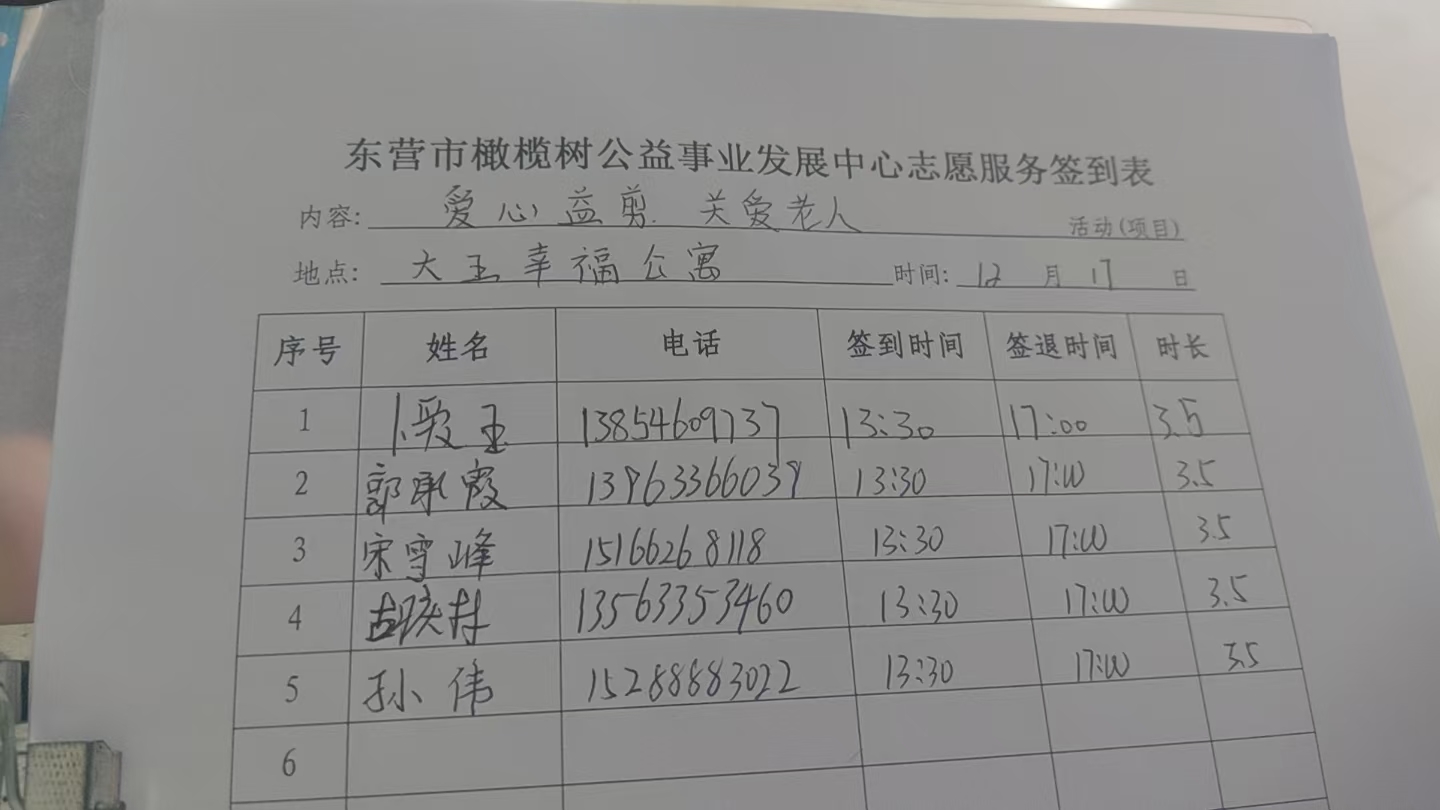 东营市橄榄树公益事业发展中心志愿服务签到表
内容: 爱心益剪 关爱老人 活动(项目)
地点: 大王幸福公寓 时间: 12 月 17 日
序号 姓名 电话 签到时间 签退时间 时长
1 卜爱玉 13854609737 13:30 17:00 3.5
2 郭承霞 13963366039 13:30 17:00 3.5
3 宋雪峰 15166268118 13:30 17:00 3.5
4 13563353460 13:30 17:00 3.5
5 孙伟 15288883022 13:30 17:00 3.5
6